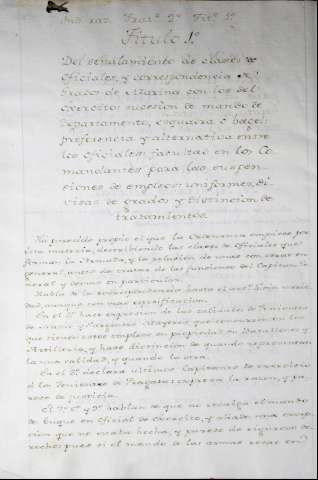 Trat.º 2.º Tit.º 1.º
Titulo 1.º
Del señalamiento de clases de
Oficiales, y correspondencia
grados de Marina con los del
exercito: sucesion de mando de
Departamento, esquadra ó baxel:
preferencia y alternativa entre
los oficiales: facultad en los Co-
mandantes para las suspen-
siones de empleos: uniformes, di-
visas de grados y distincion de
tratamientos.
Ha parecido propio el que la Ordenanza empiece por
esta materia, describiendo las clases de Oficiales que
forman la Armada, y la relacion de unas con otras en
general, antes de tratar de las funciones del Capitan Ge-
neral y demas en particular.
Habla de la correspondencia hasta el
dad, aunque con mas especificacion.
En el hace expresion de los calidades de Tenientes
de Navio y Sargentos Mayores que
que tienen estos empleos en propiedad en Batallones y
Artilleria, y hace distincion de quando representan
la una calidad, y quando la otra.
En el declara ultimos Capitanes de exercito
á los Tenientes de Fragata: cupo en la razon, y pa-
so de justicia.
El 7.º 8.º y 9.º hablan de que no recaiga el mando
de buque en oficial de exercito, y añade una excep-
cion que no estaba hecha, y parece de riguroso de-
recho: pues si el mando de las armas recae en